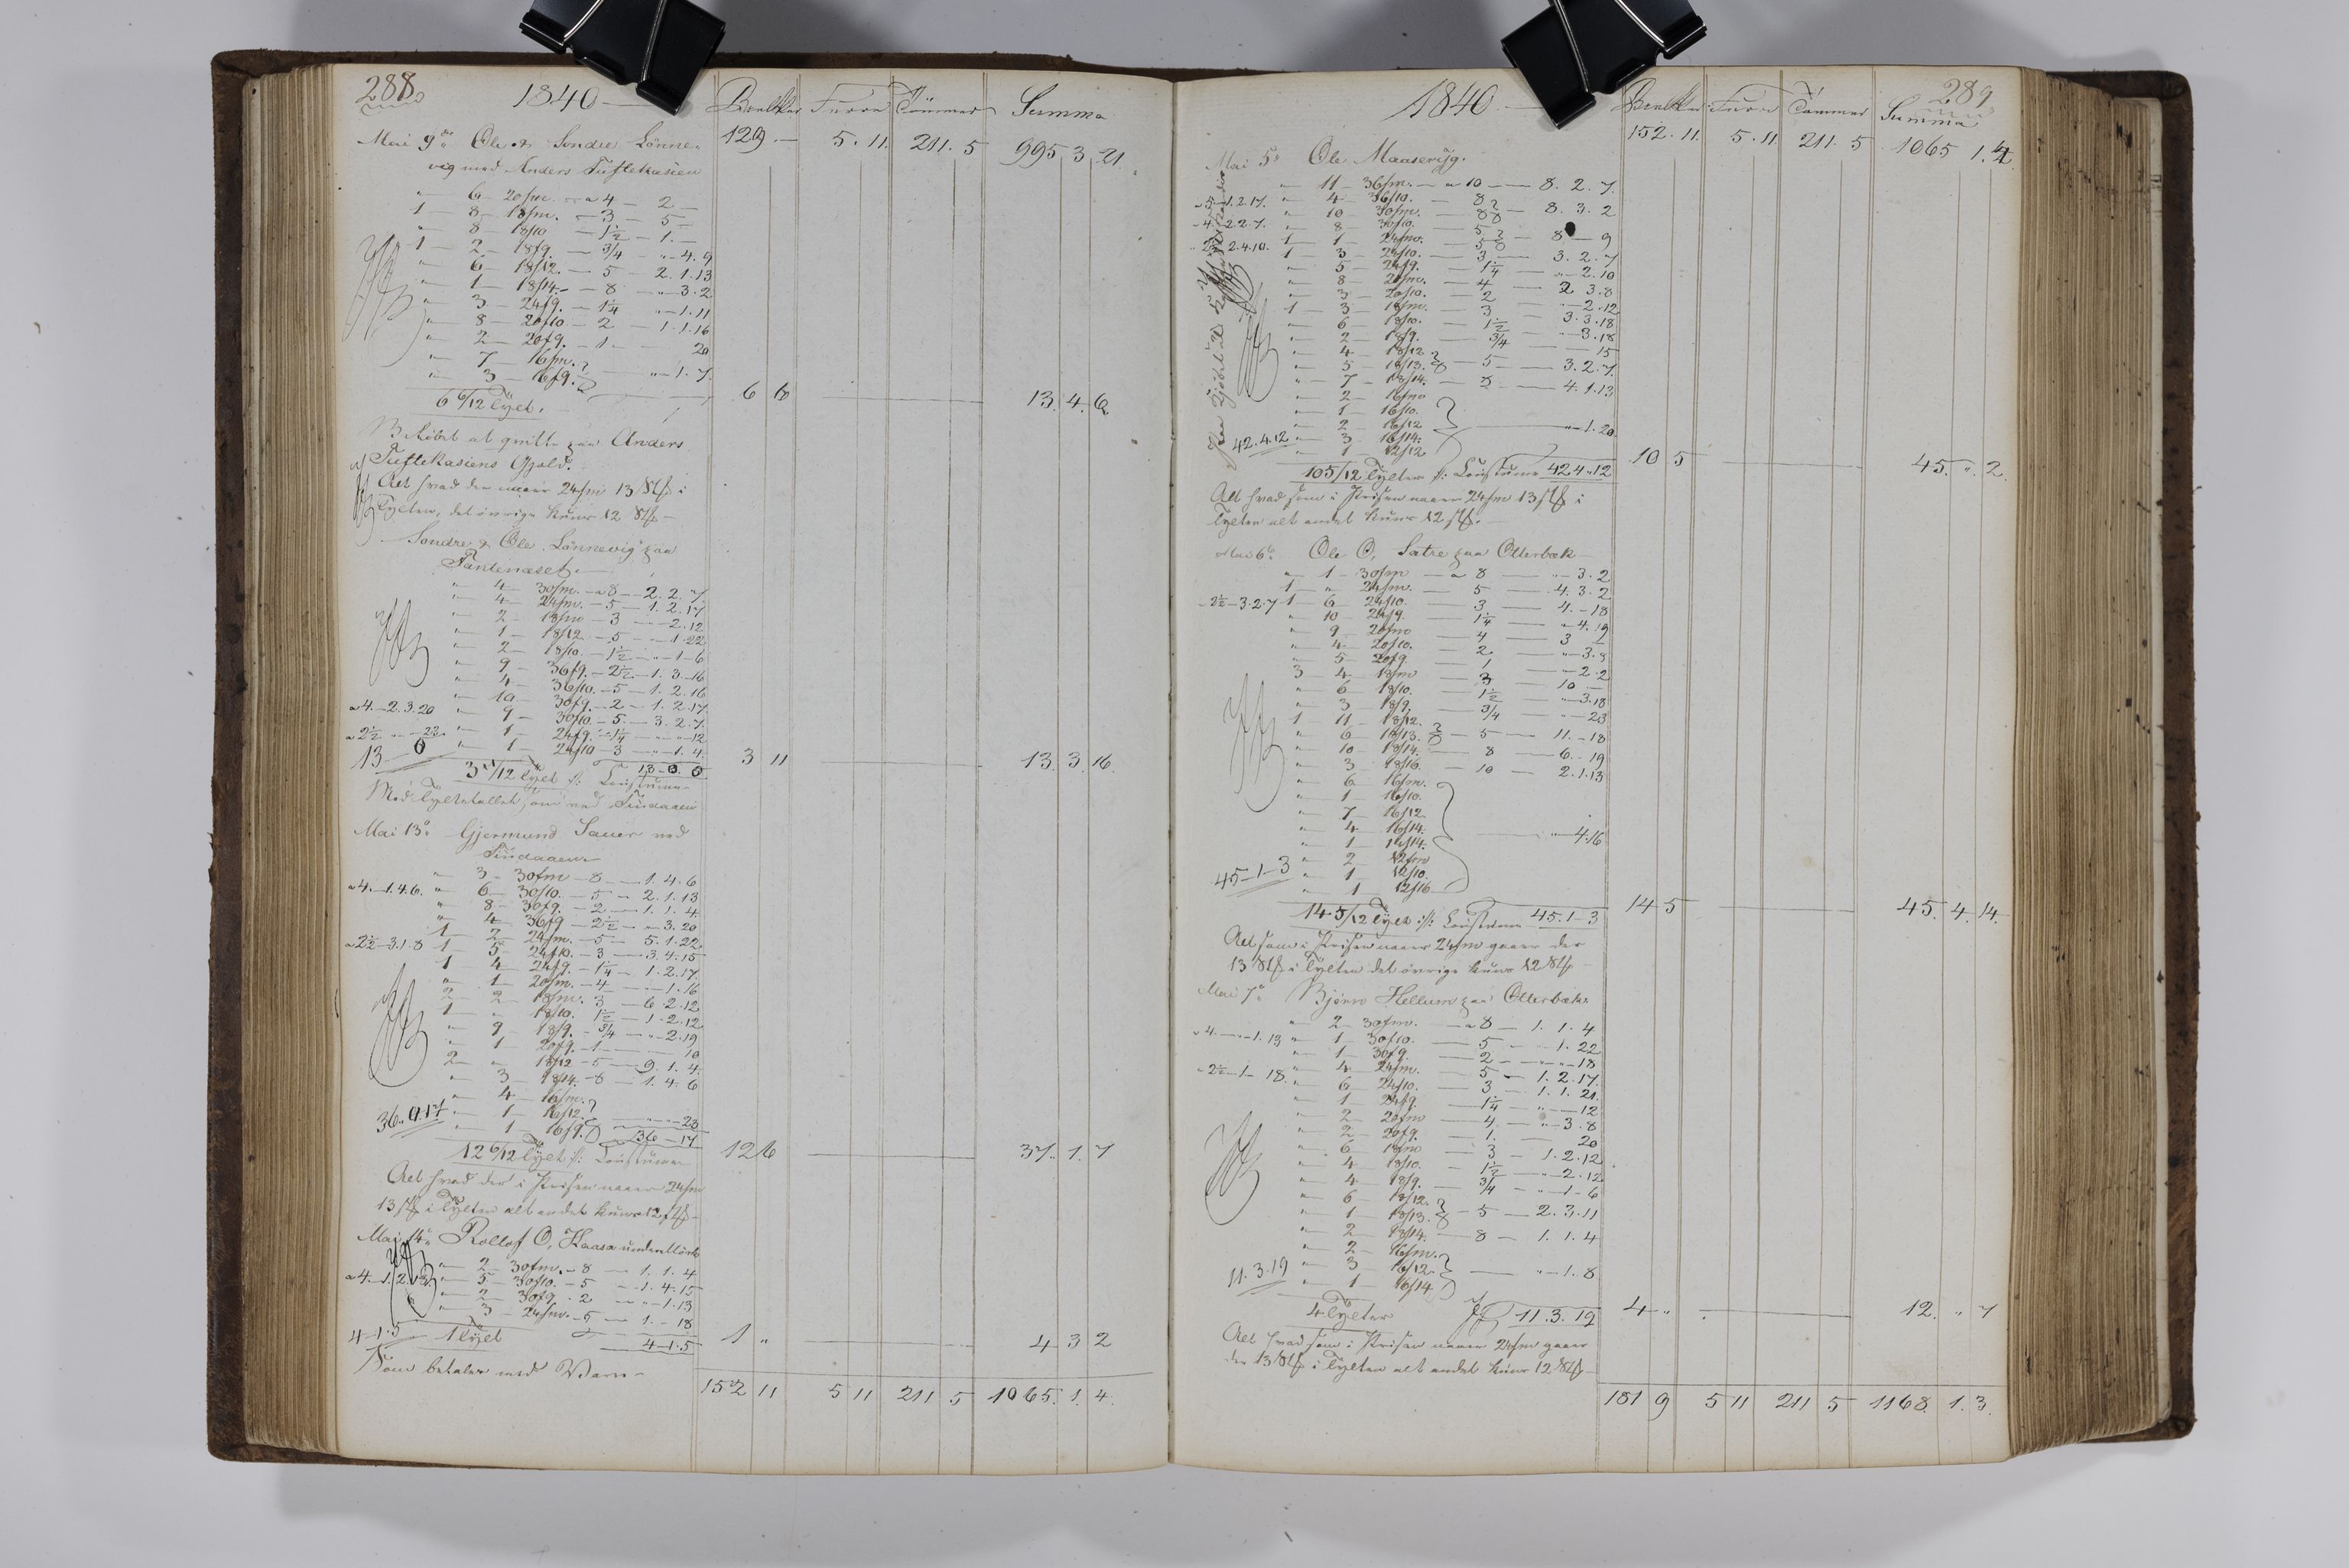 288
1840 — Bræk Furre Tömmer Summa
Mai 9de Ole & Sondre Lønne- 129 — 5. 11. 211. 5 995 3 21.
vig med Anders Tuftekasien
" 6 — 20/m. — a 4 — 2 —
1 — 8 — 18/m. — 3 — 5 —
" 8 — 18/10 — 1½ — 1. —
1 — 2 — 18/9. — 3/4 — " 4. 9
" 6 — 18/12. — 5 — 2. 1. 13
" 1 — 18/14. — 8 — " 3. 2
" 3 — 24/9. — 1¼ " 1. 11
" 8 — 20/10 — 2 — 1. 1. 16
" 2 — 20/9. — 1 — 20
" 7 — 16/m.
" 3 — 16/9. — " 1. 7.
6 6/12 Tylt. 6 6 13. 4. 6.
at qvitte paa Anders
Tuftekasiens Gjæld.
Alt hvad der naaer 24/m 13 Stk i
Tylten, det øvrige kuns 12 Stk —
Sondre & Ole Lønnevig paa
Tantenæset.
" 4 — 30/m. — a 8 — 2. 2. 7.
" 4 — 24/m. — 5 — 1. 2. 17
" 2 — 18/m — 3 — 2. 12
" 1 — 18/12 — 5 — " 1. 22
" 2 — 18/10. — 1½ — " 1 — 6
" 9 — 36/9. — 2½ — 1. 3. 16
" 4 — 36/10. — 5 — 1. 2. 16
" 10 — 30/9. — 2 — 1. 2. 17.
a 4. — 2. 3. 20 " 9 — 30/10. — 5 — 3. 2. 7.
a 2½ — " 23. " 1 — 24/9. — 1¼ — " 12
13 — 0 " 1 — 24/10 — 3 — " 1. 4.
3 11/12 Tylt 13 — 0. 0 3 11 13. 3. 16.
Med Tyltetallet som ved Tindaaen
Mai 13de Gjermund Sauer ved
Tindaaen
" 3 — 30/m — 8 — 1. 4. 6
a 4. — 1. 4. 6. " 6 — 30/10. — 5 — 2. 1. 13
" 8 — 30/9. — 2 — 1. 1. 4.
" 4 — 36/9 — 2½ — " 3. 20
1 — 2 — 24/m. — 5 — 5. 1. 22.
a 2½ — 3. 1. 8 1 5 — 24/10. — 3 — 3. 4. 15
1 4 — 24/9. — 1¼ — 1. 2. 17.
" 1 — 20/m. — 4 — 1. 16
2 2 — 18/m. 3 — 6. 2. 12
1 " 18/10. 1½ — 1. 2. 12
" 9 — 18/9. — 3/4 — " 2. 19
" 1 — 20/9. — 1 — 10
2 " 18/12 — 5 — 9. 1. 4.
" 3 — 18/14. — 8 — 1. 4. 6
" 4 — 16/m.
36. 0. 17 " 1 — 16/12. — 23
" 1 — 16/9. 36 — 17
12 6/12 Tylt 12 6 37. 1. 7
Alt hvad der i Prisen naaer 24/m
13 stk i Tylten alt andet kuns 12 stk —
Mai 14de Rollof O, Haasa
" 2 — 30/m. — 8 — 1. 1. 4
a 4. — 1. 2. " 5 — 30/10. — 5 — 1. 4. 15
" 2 — 30/9 — 2 — " 1. 13
" 3 — 24/m. — 5 — 1. — 18
4 — 1. 5 1 Tylt 4. 1. 5 1 " 4 3 2
Som betales med Varer —
152 11 5 11 211 5 1065. 1. 4.
289
1840. — Furre Tømmer Summa
152. 11. 5. 11 211. 5 1065 1. 4
Mai 5te Ole Maaserüg.
" 11 — 36/m. — a 10 — 8. 2. 7.
a 5 — 1. 2. 17. " 4 — 36/10. — 8
" 10 — 30/m. — 8 — 8. 3. 2
a 4. — 2. 2. 7. " 8 — 30/10. — 5
1 1 — 24/m. — 5 — 8 — 9
2. 4. 10. 1 3 — 24/10. — 3 — 3. 2. 7
" 5 — 24/9. — 1¼ — " 2. 10
" 8 — 20/m. — 4 — 2 3. 8
" 3 — 20/10. — 2 — " 2. 12
1 3 — 18/m. — 3 — 3. 3. 18
" 6 — 18/10. — 1½ — " 3. 18
" 2 — 18/9. — 3/4 — 15
" 4 — 18/12.
" 5 — 18/13. — 5 — 3. 2. 7.
" 7 — 18/14. — 8 — 4. 1. 13
" 2 — 16/m
" 1 — 16/10.
" 2 — 16/12 — " 1. 20.
42. 4. 12 " 3 — 16/14.
" 1 — 12/12
10 5/12 Tylter 42 4. 12 10 5 45. " 2.
Alt hvad som i Prisen naaer 24/m 13 stk i
Tylten alt andet kuns 12 stk. —
Mai 6te Ole O, Sætre paa Otterbæk
" 1 — 30/m — a 8 — " 3. 2
1 " 24/m. — 5 — 4. 3. 2
a 2½ — 3. 2. 7 1 6 — 24/10. — 3 — 4. — 18
" 10 — 24/9. — 1¼ — " 4. 19
" 9 — 20/m — 4 — 3
" 4 — 20/10. — 2 — " 3. 8
" 5 — 20/9. — 1 — " 2. 2
3 4 — 18/m — 3 — 10 —
" 6 — 18/10. — 1½ — " 3. 18
" 3 — 18/9. — 3/4 — " 23
1 11 — 18/12.
" 6 — 18/13. — 5 — 11. — 18
" 10 — 18/14. — 8 — 6. — 19
" 3 — 18/16. — 10 — 2. 1. 13
" 6 — 16/m.
" 1 — 16/10.
" 7 — 16/12
" 4 — 16/14. — " 4. 16
" 1 — 14/14.
" 2 — 12/m
45 — 1 — 3 " 1 — 12/10.
" 1 12/16
14 5/12 Tylt 45. 1 — 3 14 5 45. 4. 14.
Alt som i Prisen naaer 24/m gaaer der
13 Stk i Tylten det øvrige kuns 12 Stk
Mai 7de Bjørn Hellum paa Otterbæk.
" 2 — 30/m. — a 8 — 1. 1. 4
a 4. — " 1. 13 " 1 — 30/10. — 5 — 1. 22
" 1 — 30/9. — 2 — " 18
" 4 — 24/m. — 5 — 1. 2. 17.
a 2½ — 1 — 18. " 6 — 24/10. — 3 — 1. 1. 21.
" 1 — 24/9. — 1¼ — " 12
" 2 — 20/m — 4 — " 3. 8
" 2 — 20/9. — 1. — 20
" 6 — 18/m — 3 — 1. 2. 12
" 4 — 18/10. — 1½ — " 2. 12
" 4 — 18/9. — 3/4 — " 1 — 6
" 6 — 18/12.
" 1 — 18/13. — 5 — 2. 3. 11
" 2 — 18/14. — 8 — 1. 1. 4
" 2 — 16/m.
" 3 — 16/12 — " 1. 8
11. 3. 19 " 1 — 16/14
4 Tylter 11. 3. 19 4 " 12. " 7
Alt hvad som i Prisen naaer 24/m gaaer
der 13 Stk i Tylten alt andet kuns 12 Stk —
181 9 5 11 211 5 1168. 1. 3.